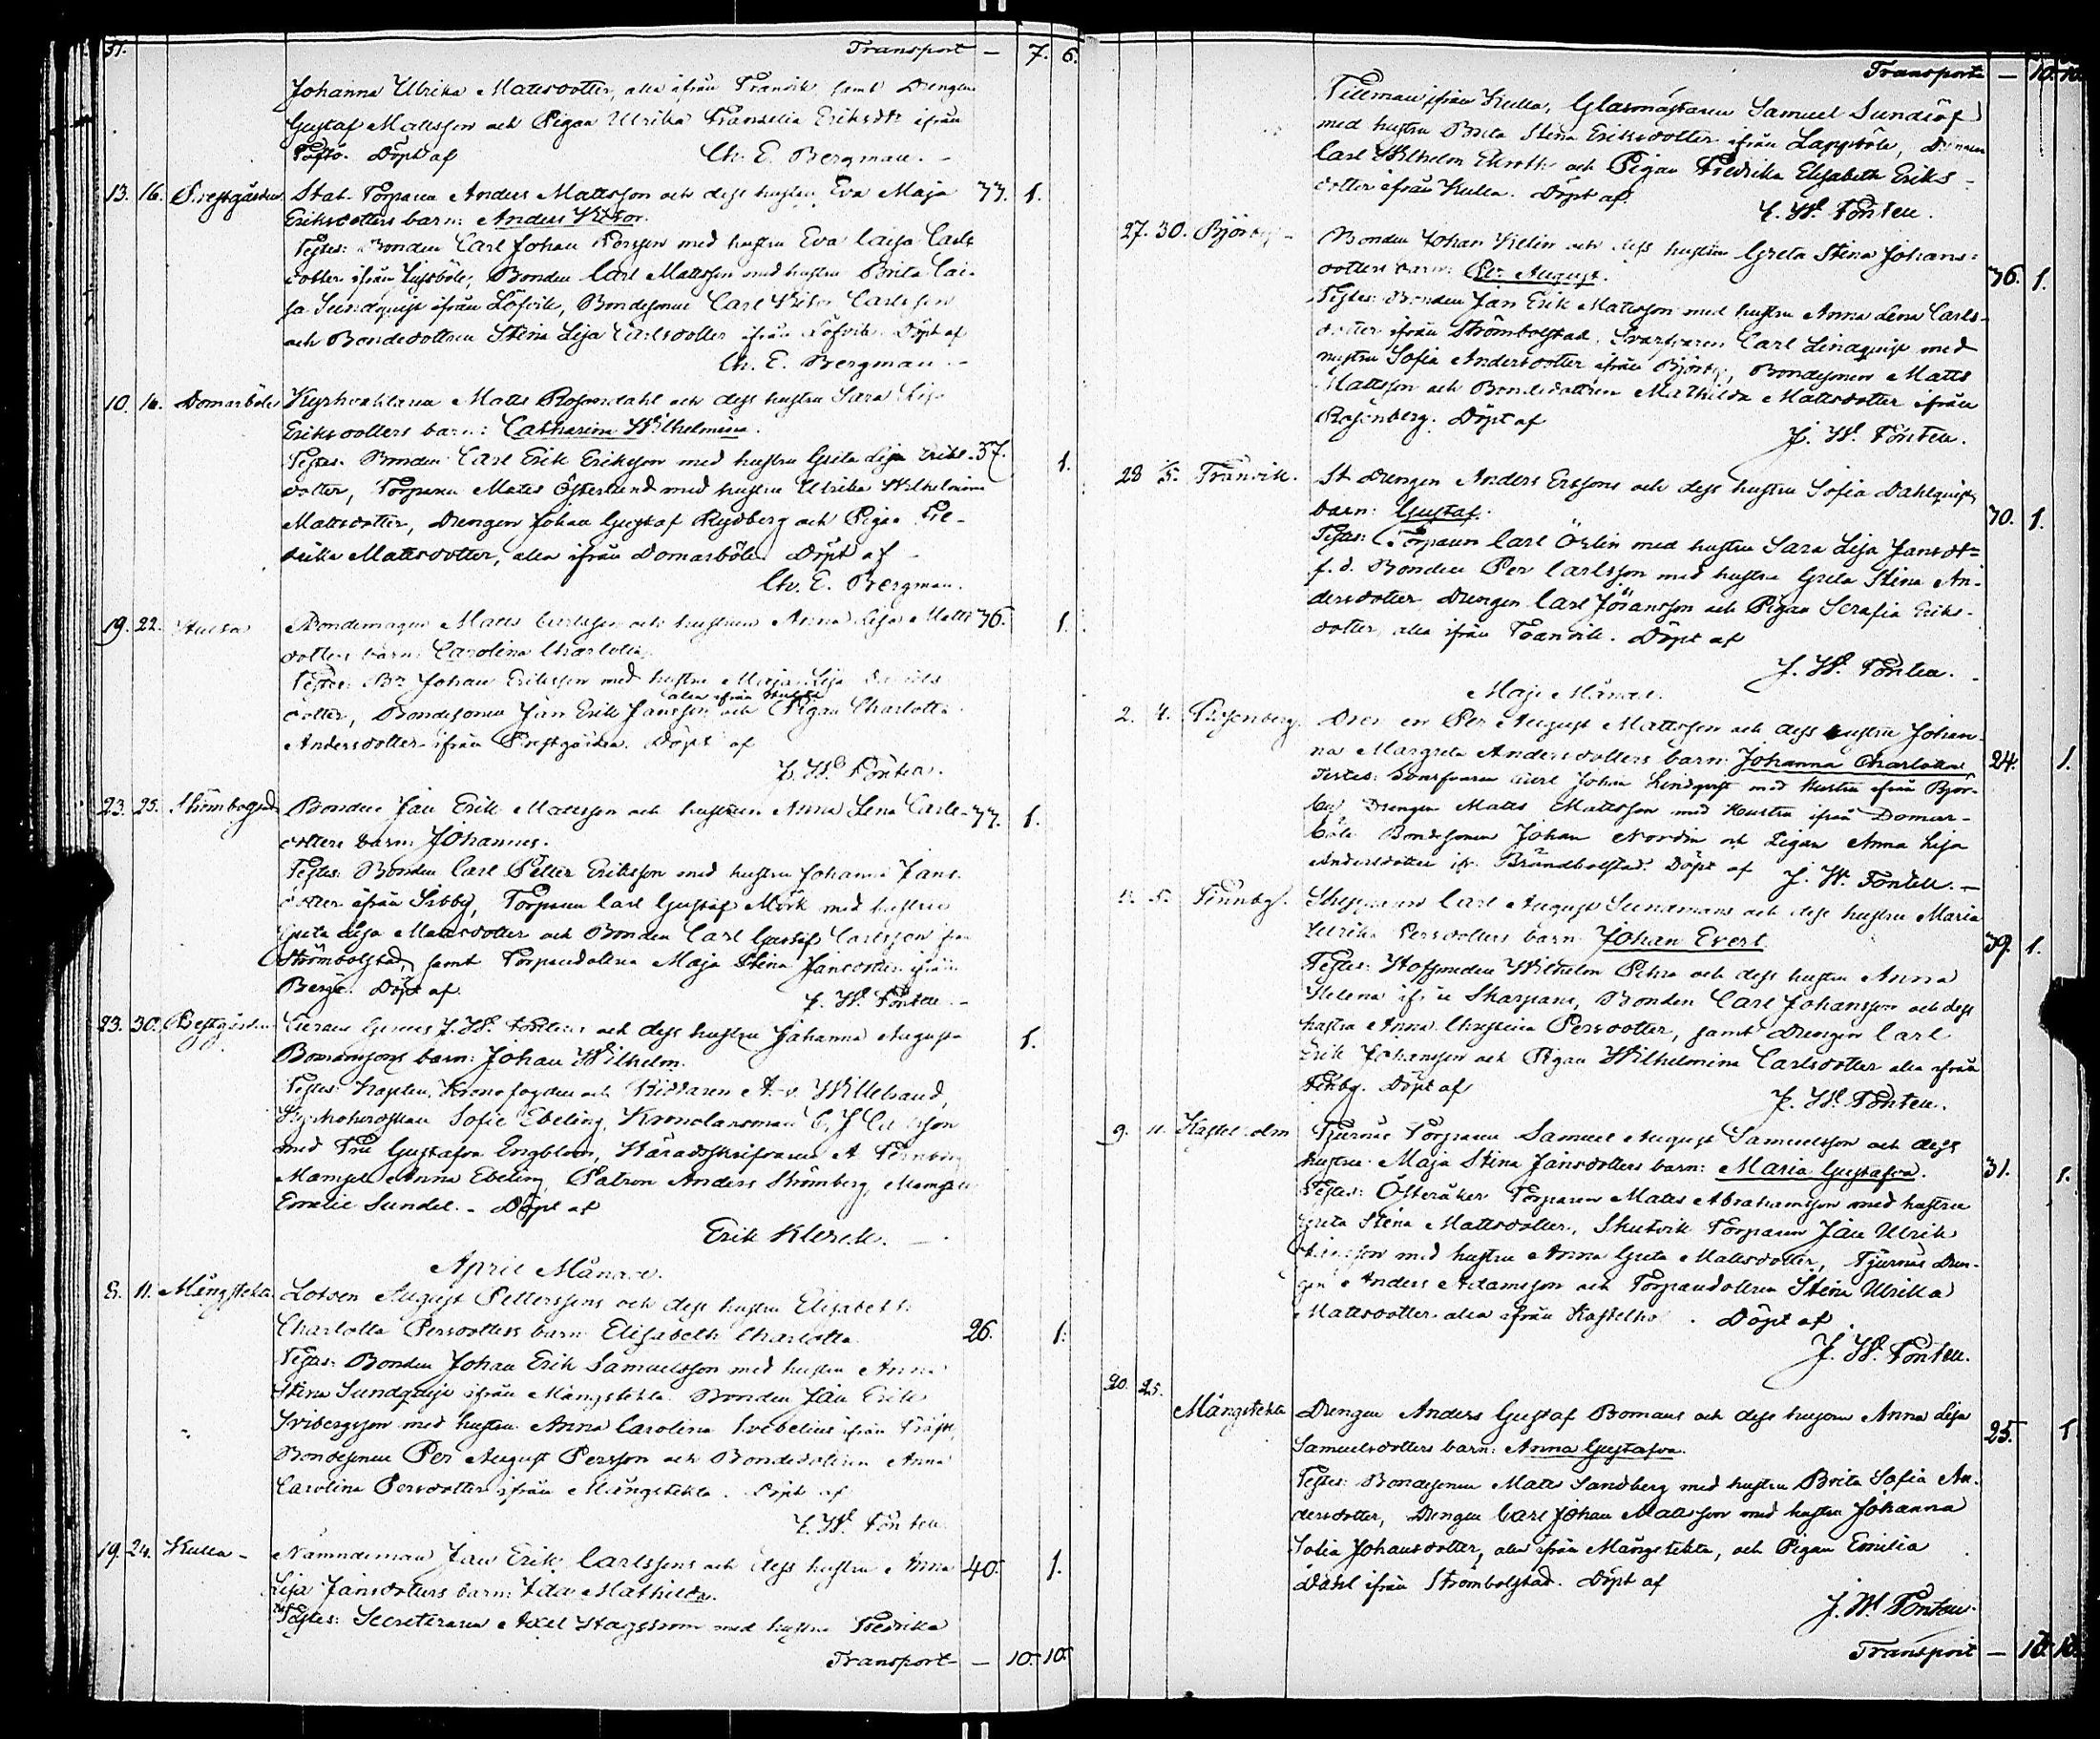 Transport — 7. 6.
Johanna Ulrika Mattsdotter, alla ifrån Tranvik samt Drengen
Gustaf Mattsson och Pigan Ulrika Eriksdr ifrån
Töftö. Döpt af Ch. E. Bergman.
13. 16. Prestgården Stat. Torparen Anders Mattsson och dess hustru Eva Maja 37. 1.
Eriksdotters barn: Anders Victor.
Testes: Bonden Carl Johan Persson med hustru Eva Caisa Carls
dotter ifrån Lisböle, Bonden Carl Mattsson med hustru Brita Cai-
sa Sundqvist ifrån Löfvik, Bondesonen Carl Victor Carlsson
och Bondedottren Stina Lisa Carlsdotter ifrån Löfvik. Döpt af
Ch. E. Bergman.
10. 16. Domarböle Kyrkväktaren Matts Rosendahl och dess hustru Sara Lisa
Eriksdotters barn: Catharina Wilhelmina.
Testes. Bonden Carl Erik Eriksson med hustru Greta Lisa Eriks- 37. 1.
dotter, Torparen Matts Österlund med hustru Ulrika Wilhelmina
Mattsdotter, Drengen Johan Gustaf Rydberg och Pigan Fre-
drika Mattsdotter, alla ifrån Domarböle. Döpt af
Ch. E. Bergman.
19. 22. Hulta Bondemågen Matts Carlsson och hustrun Anna Lisa Matts 36. 1.
dotters barn: Carolina Charlotta.
Testes: Br Johan Eriksson med hustru Maja Lisa
alla ifrån Hulta
dotter, Bondesonen Jan Erik Jansson och Pigan Charlotta
Andersdotter ifrån Prestgården. Döpt af
J. W. Fonten.
23. 25. Strömbolstad Bonden Jan Erik Mattsson och hustrun Anna Lena Carls- 37. 1.
dotters barn: Johannes.
Testes: Bonden Carl Petter Eriksson med hustru Johanna Jans-
dotter ifrån Sibby, Torparen Carl Gustaf Mörk med hustru
Greta Lisa Mattsdotter och Bonden Carl Gustaf Carlsson från
Strömbolstad, samt Torparedottren Maja Stina Jansdotter ifrån
Bergö. Döpt af J. W. Fonten.
23. 30. J. W. Fontens och dess hustru Johanna Augusta 1.
Bomanssons barn: Johan Wilhelm.
Testes: Kapten, Kronofogden och Riddaren A. v. Willebrand,
Kyrkoherdskan Sofie Ebeling, Kronolänsman C. J.
med Fru Gustafva Engblom, Häradsskrifvaren A
Mamsell Anna Ebeling, Patron Anders Strömberg, Mamsell
Emelie Sundel. - Döpt af
Erik Klerck.
April Månad.
8. 11. Mångstekta Lotsen August Petterssons och dess hustru Elisabeth
Charlotta Persdotters barn Elisabeth Charlotta. 26. 1.
Testes: Bonden Johan Erik Samuelsson med hustru Anna
Stina Sundqvist ifrån Mångstekta. Bonden Jan Erik
Svibergsson med hustru Anna Carolina ifrån
Bondesonen Per August Persson och Bondedottren Anna
Carolina Persdotter ifrån Mångstekta. Döpt af
J. W. Fonten.
19. 24. Kulla - Nämndeman Jan Erik Carlssons och dess hustru Anna 40. 1.
Lisa Jansdotters barn: Ida Mathilda.
Testes: Secreteraren Axel Hagström med hustru Fredrika
Transport — 10. 10.
Transport — 10. 10.
Tillman ifrån Kulla, Glasmästaren Samuel Sundlöf
med hustru Brita Stina Eriksdotter ifrån Lappböle, Drengen
Carl Wilhelm Ekroth och Pigan Fredrika Elisabeth Eriks-
dotter ifrån Kulla. Döpt af
J. W. Fonten.
27. 30. Björby - Bonden Johan Kelin och dess hustru Greta Stina Johans-
dotters barn: Per August. 36. 1.
Testes: Bonden Jan Erik Mattsson med hustru Anna Lena Carls-
dotter ifrån Strömbolstad, Svarfvaren Carl Lindqvist med
hustru Sofia Andersdotter ifrån Björby, Bondesonen Matts
Mattsson och Bondedottren Mathilda Mattsdotter ifrån
Rosenberg. Döpt af
J. W. Fonten.
28 1/5. Tranvik. St Drengen Anders Erssons och dess hustru Sofia Dahlqvists
barn: Gustaf. 30. 1.
Testes: Torparen Carl Öslin med hustru Sara Lisa Jansdr
f. d. Bonden Per Carlsson med hustru Greta Stina An-
dersdotter Drengen Carl Göransson och Pigan Serafia Eriks-
dotter, alla ifrån Tranvik. Döpt af
J. W. Fonten.
Maji Månad.
2. 4. Rosenberg. Drengen Per August Mattsson och dess hustru Johan-
na Margreta Andersdotters barn: Johanna Charlotta 24. 1.
Testes: Svarfvaren Carl Johan Lindqvist med Hustru ifrån Björ-
by, Drengen Matts Mattsson med Hustru ifrån Domar-
böle Bondesonen Johan Nordin och Pigan Anna Lisa
Andersdotter ifr. Brändbolstad. Döpt af J. W. Fonten. -
5. Finnby. Carl August Sundmans och dess hustru Maria
Ulrika Persdotters barn Johan Evert. 39. 1.
Testes: Hofsmeden Wilhelm Pehra och dess hustru Anna
Helena ifrån Skarpans, Bonden Carl Johansson och dess
hustru Anna Christina Persdotter, samt Drengen Carl
Erik Johansson och Pigan Wilhelmina Carlsdotter alla ifrån
Finby. Döpt af J. W. Fonten.
9. 11. Kastelholm Tjurnäs Torparen Samuel August Samuelsson och dess
hustru Maja Stina Jansdotters barn: Maria Gustafva. 31. 1.
Testes: Österåker Torparen Matts Abrahamsson med hustru
Greta Stina Mattsdotter, Skutvik Torparen Jan Ulrik
med hustru Anna Greta Mattsdotter, Tjurnäs Dren-
gen Anders Adamsson och Torparedottren Stina Ulrika
Mattsdotter alla ifrån Kastelho. Döpt af
J. W. Fonten.
20. 25.
Mångstekta Drengen Anders Gustaf Bomans och dess hustru Anna Lisa
Samuelsdotters barn: Anna Gustafva. 25. 1.
Testes: Bondesonen Matts Sandberg med hustru Brita Sofia An-
dersdotter, Drengen Carl Johan Mattsson med hustru Johanna
Sofia Johansdotter, alla ifrån Mångstekta, och Pigan Emilia
Dahl ifrån Strömbolstad. Döpt af
J. W. Fonten.
Transport —